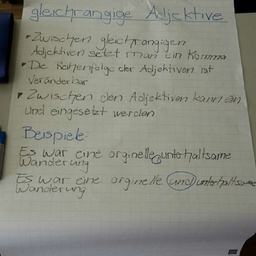 gleichrangige Adjektive
• Zwischen gleichrangigen
Adjektiven setzt man ein Komma
• Die Reihenfolge der Adjektiven ist
veränderbar
• Zwischen den Adjektiven kann ein
und eingesetzt werden
Beispiele:
Es war eine orginelle, unterhaltsame
Wanderung
Es war eine orginelle und unterhaltsame
Wanderung